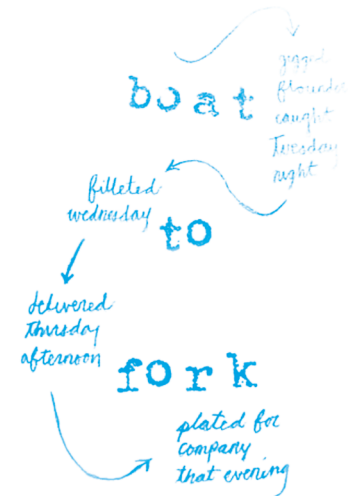 boat
gigged
flounder
caught
Tuesday
night
filleted
wednesday
to
delivered
thursday
afternoon
fork
plated for
company
that evening